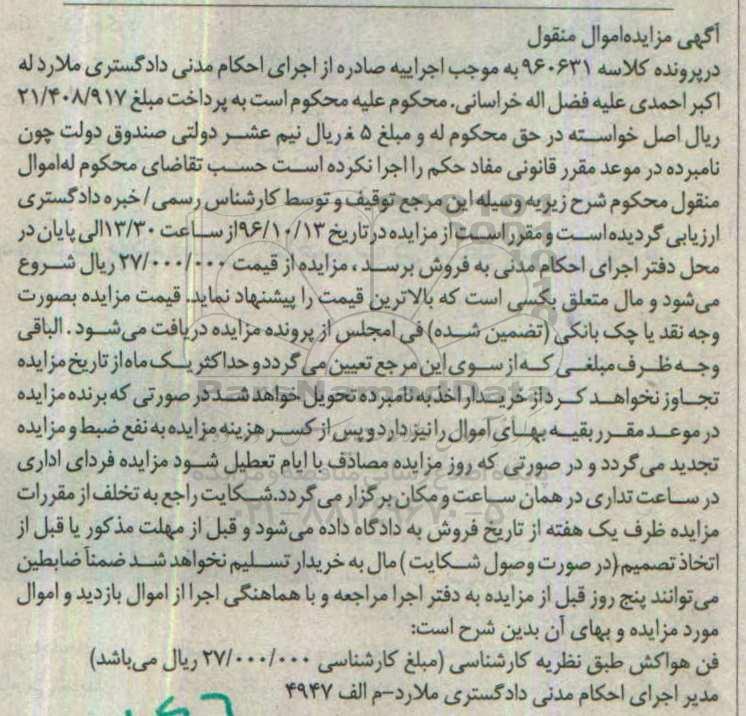 آگهی مزایدهاموال منقول
درپرونده کلاسه ۹۶۰۶۳۱ به موجب اجراییه صادره از اجرای احکام مدنی دادگستری ملارد له
اکبر احمدی علیه فضل اله خراسانی. محکوم علیه محکوم است به پرداخت مبلغ ۲۱/۴۰۸/۹۱۷
ریال اصل خواسته در حق محکوم له و مبلغ ۵ ریال نیم عشر دولتی صندوق دولت چون
نامبرده در موعد مقرر قانونی مفاد حکم را اجرا نکرده است حسب تقاضای محکوم لهاموال
منقول محکوم شرح زیربه وسیله این مرجع توقیف و توسط کارشناس رسمی/ خبره دادگستری
ارزیابی گردیده است و مقرر است از مزایده درتاریخ ۹۶/۱۰/۱۳از ساعت ۱۳/۳۰الی پایان در
محل دفتر اجرای احکام مدنی به فروش برسد ، مزایده از قیمت ۲۷/۰۰۰/۰۰۰ ریال شروع
می‌شود و مال متعلق بکسی است که بالاترین قیمت را پیشنهاد نماید. قیمت مزایده بصورت
وجه نقد یا چک بانکی (تضمین شده) فی امجلس از پرونده مزایده دریافت می‌شود . الباقی
وجه ظرف مبلغی که از سوی این مرجع تعیین می گردد و حداکثر یک ماه از تاریخ مزایده
تجاوز نخواهد کرد از خریدار اخذ به نامبرده تحویل خواهد شد در صورتی که برنده مزایده
در موعد مقرر بقیه بهای اموال را نیز دارد و پس از کسر هزینه مزایده به نفع ضبط و مزایده
تجدید می گردد و در صورتی که روز مزایده مصادف با ایام تعطیل شود مزایده فردای اداری
در ساعت تداری در همان ساعت و مکان برگزار می گردد.شکایت راجع به تخلف از مقررات
مزایده ظرف یک هفته از تاریخ فروش به دادگاه داده می‌شود و قبل از مهلت مذکور یا قبل از
اتخاذ تصمیم (در صورت وصول شکایت ) مال به خریدار تسلیم نخواهد شد ضمناً ضابطین
می‌توانند پنج روز قبل از مزایده به دفتر اجرا مراجعه و با هماهنگی اجرا از اموال بازدید و اموال
مورد مزایده و بهای آن بدین شرح است:
فن هواکش طبق نظریه کارشناسی (مبلغ کارشناسی ۲۷/۰۰۰/۰۰۰ ریال می‌باشد)
مدیر اجرای احکام مدنی دادگستری ملارد-م الف ۴۹۴۷
ParsNamadData